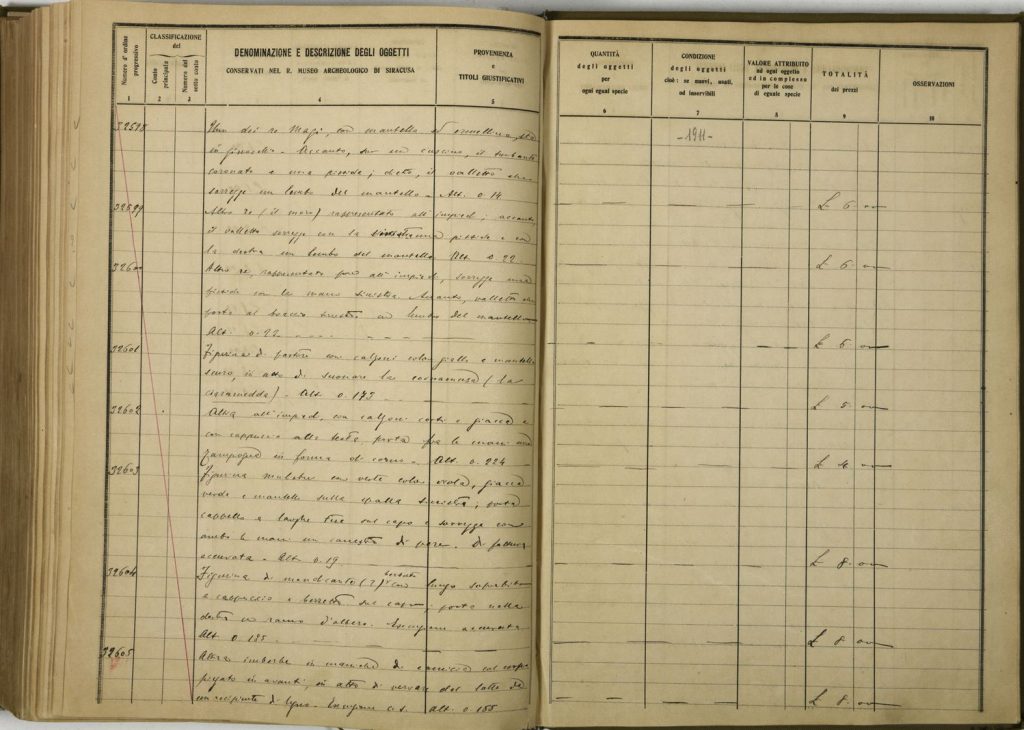 Numero d'ordine progressivo
CLASSIFICAZIONE
del
Conto principale
Numero del sotto conto
DENOMINAZIONE E DESCRIZIONE DEGLI OGGETTI
CONSERVATI NEL R. MUSEO ARCHEOLOGICO DI SIRACUSA
PROVENIENZA
e
TITOLI GIUSTIFICATIVI
1 2 3 4 5
32598 Uno dei re Magi, con mantello ed ermellino, sta
in ginocchio. Accanto, su un cuscino, il turbante
coronato e una pisside; dietro, il valletto che
sorregge un lembo del mantello. Alt. 0.14
32599 Altro re (il moro) rappresentato all'impiedi; accanto,
il valletto sorregge con la una pisside e con
la destra un lembo del mantello. Alt. 0.22
32600 Altro re, rappresentato pure all'impiedi, sorregge una
pisside con la mano sinistra. Accanto, valletto che
porta al braccio sinistro un lembo del mantello
Alt. 0.22
32601 Figurina di pastore con calzoni color giallo e mantello
scuro, in atto di suonare la cornamusa (la
ciaramedda). Alt. 0.173
32602 Altra all'impiedi, con calzoni corti e giacca e
con cappuccio alla testa, porta fra le mani una
zampogna in forma di corno. Alt. 0.224
32603 Figurina muliebre con veste color viola, giacca
verde e mantello sulla spalla sinistra; porta
cappello a larghe tese sul capo e sorregge con
ambo le mani un canestro di pere. Di fattura
accurata. Alt. 0.19
32604 Figurina di mendicante (?) barbuto con lungo soprabito
e cappuccio e berretto sul capo; porta nella
destra un ramo d'albero. Esecuzione accurata
Alt. 0.185
32605 Altra imberbe in maniche di camicia col corpo
piegato in avanti, in atto di versare del latte da
un recipiente di legno. Esecuzione c.s. Alt. 0.155
QUANTITÀ
degli oggetti
per
ogni egual specie
CONDIZIONE
degli oggetti
cioè: se nuovi, usati,
od inservibili
VALORE ATTRIBUITO
ad ogni oggetto
ed in complesso
per le cose
di eguale specie
TOTALITÀ
dei prezzi
OSSERVAZIONI
6 7 8 9 10
- 1911 -
£ 6.00
£ 6.00
£ 6.00
£ 8.00
£ 4.00
£ 8.00
£ 8.00
£ 8.00